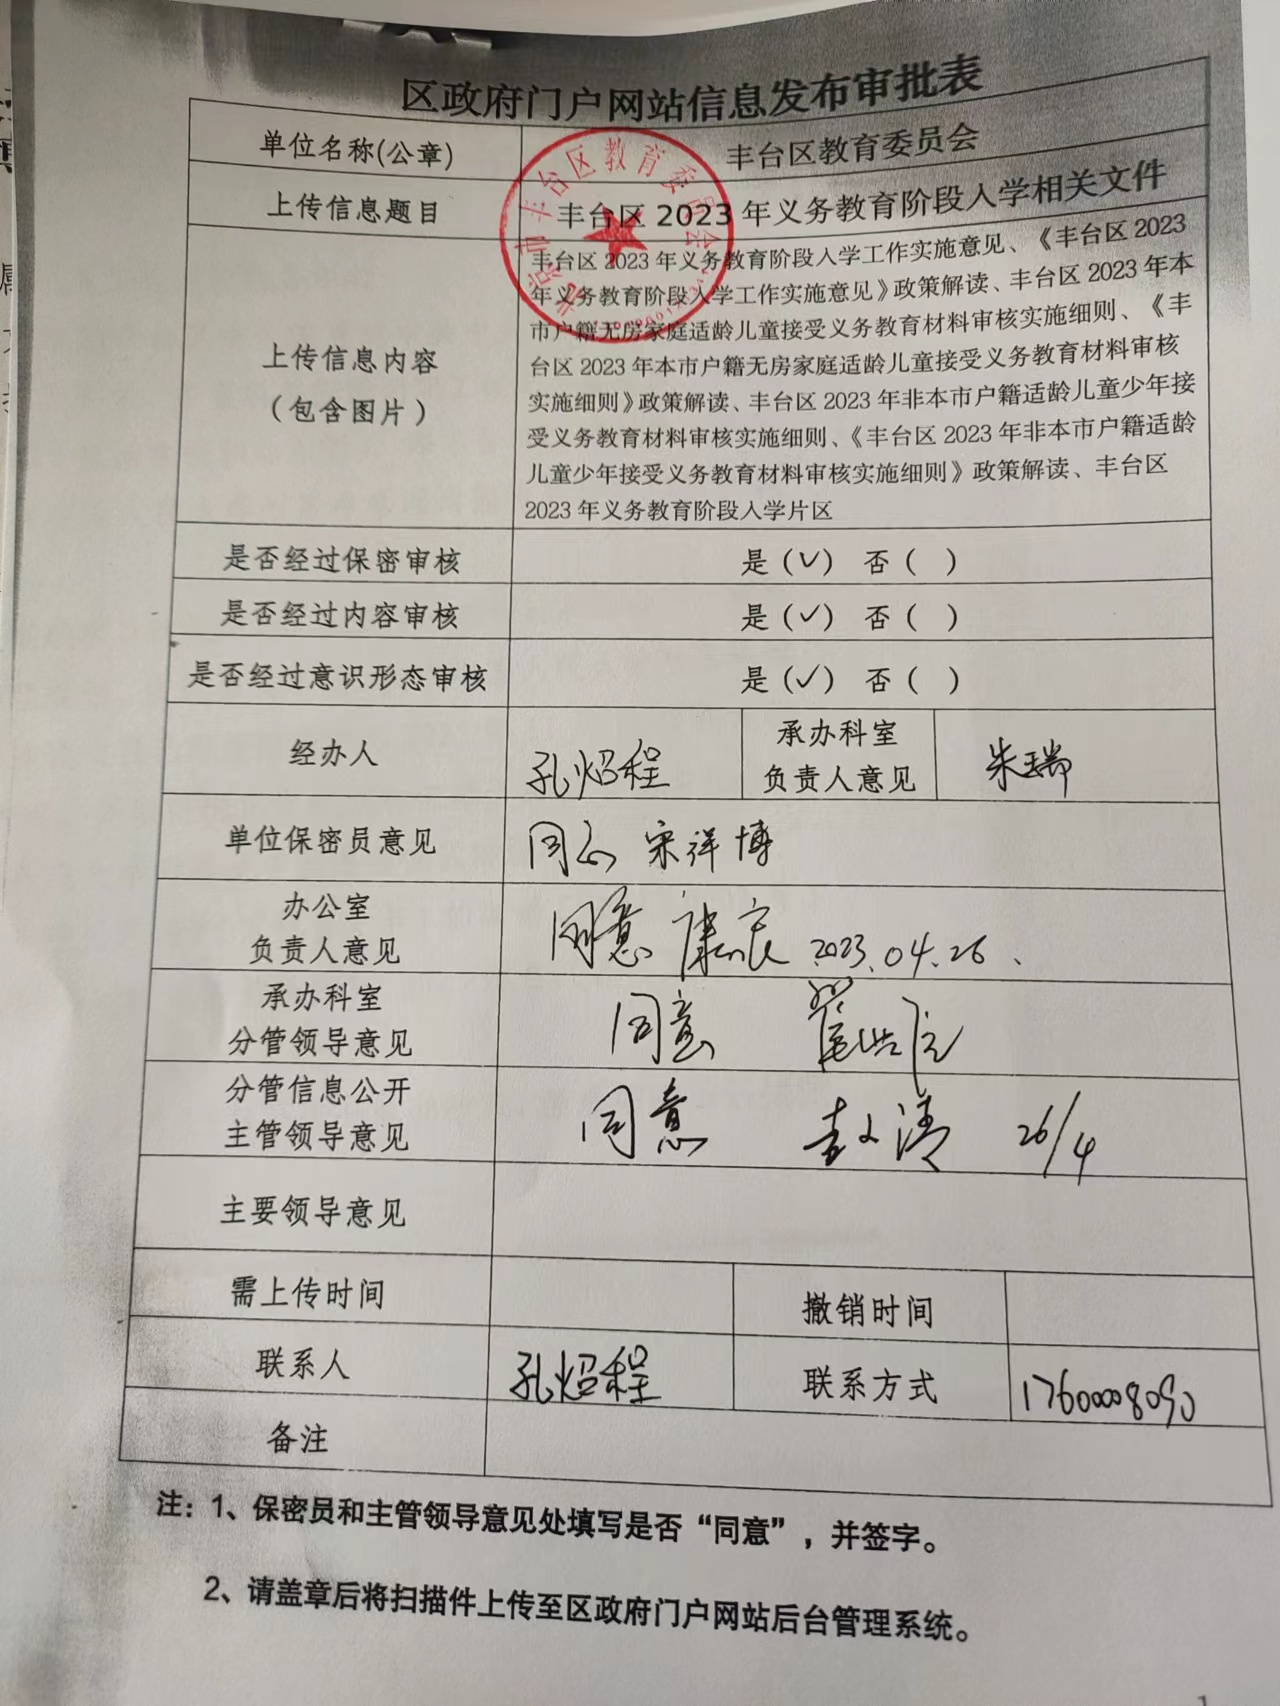 区政府门户网站信息发布审批表
单位名称(公章) 丰台区教育委员会
上传信息题目 丰台区 2023 年义务教育阶段入学相关文件
上传信息内容
（包含图片）
丰台区 2023 年义务教育阶段入学工作实施意见、《丰台区 2023
年义务教育阶段入学工作实施意见》政策解读、丰台区 2023 年本
市户籍无房家庭适龄儿童接受义务教育材料审核实施细则、《丰
台区 2023 年本市户籍无房家庭适龄儿童接受义务教育材料审核
实施细则》政策解读、丰台区 2023 年非本市户籍适龄儿童少年接
受义务教育材料审核实施细则、《丰台区 2023 年非本市户籍适龄
儿童少年接受义务教育材料审核实施细则》政策解读、丰台区
2023 年义务教育阶段入学片区
是否经过保密审核 是（✓） 否（ ）
是否经过内容审核 是（✓） 否（ ）
是否经过意识形态审核 是（✓） 否（ ）
经办人 孔炤程
承办科室
负责人意见
朱瑞
单位保密员意见 同意 宋祥博
办公室
负责人意见
同意 2023.04.26.
承办科室
分管领导意见
同意
分管信息公开
主管领导意见
同意 赵清 26/4
主要领导意见
需上传时间 撤销时间
联系人 孔炤程 联系方式 17600008090
备注
注：1、保密员和主管领导意见处填写是否“同意”，并签字。
2、请盖章后将扫描件上传至区政府门户网站后台管理系统。
北京市丰台区教育委员会